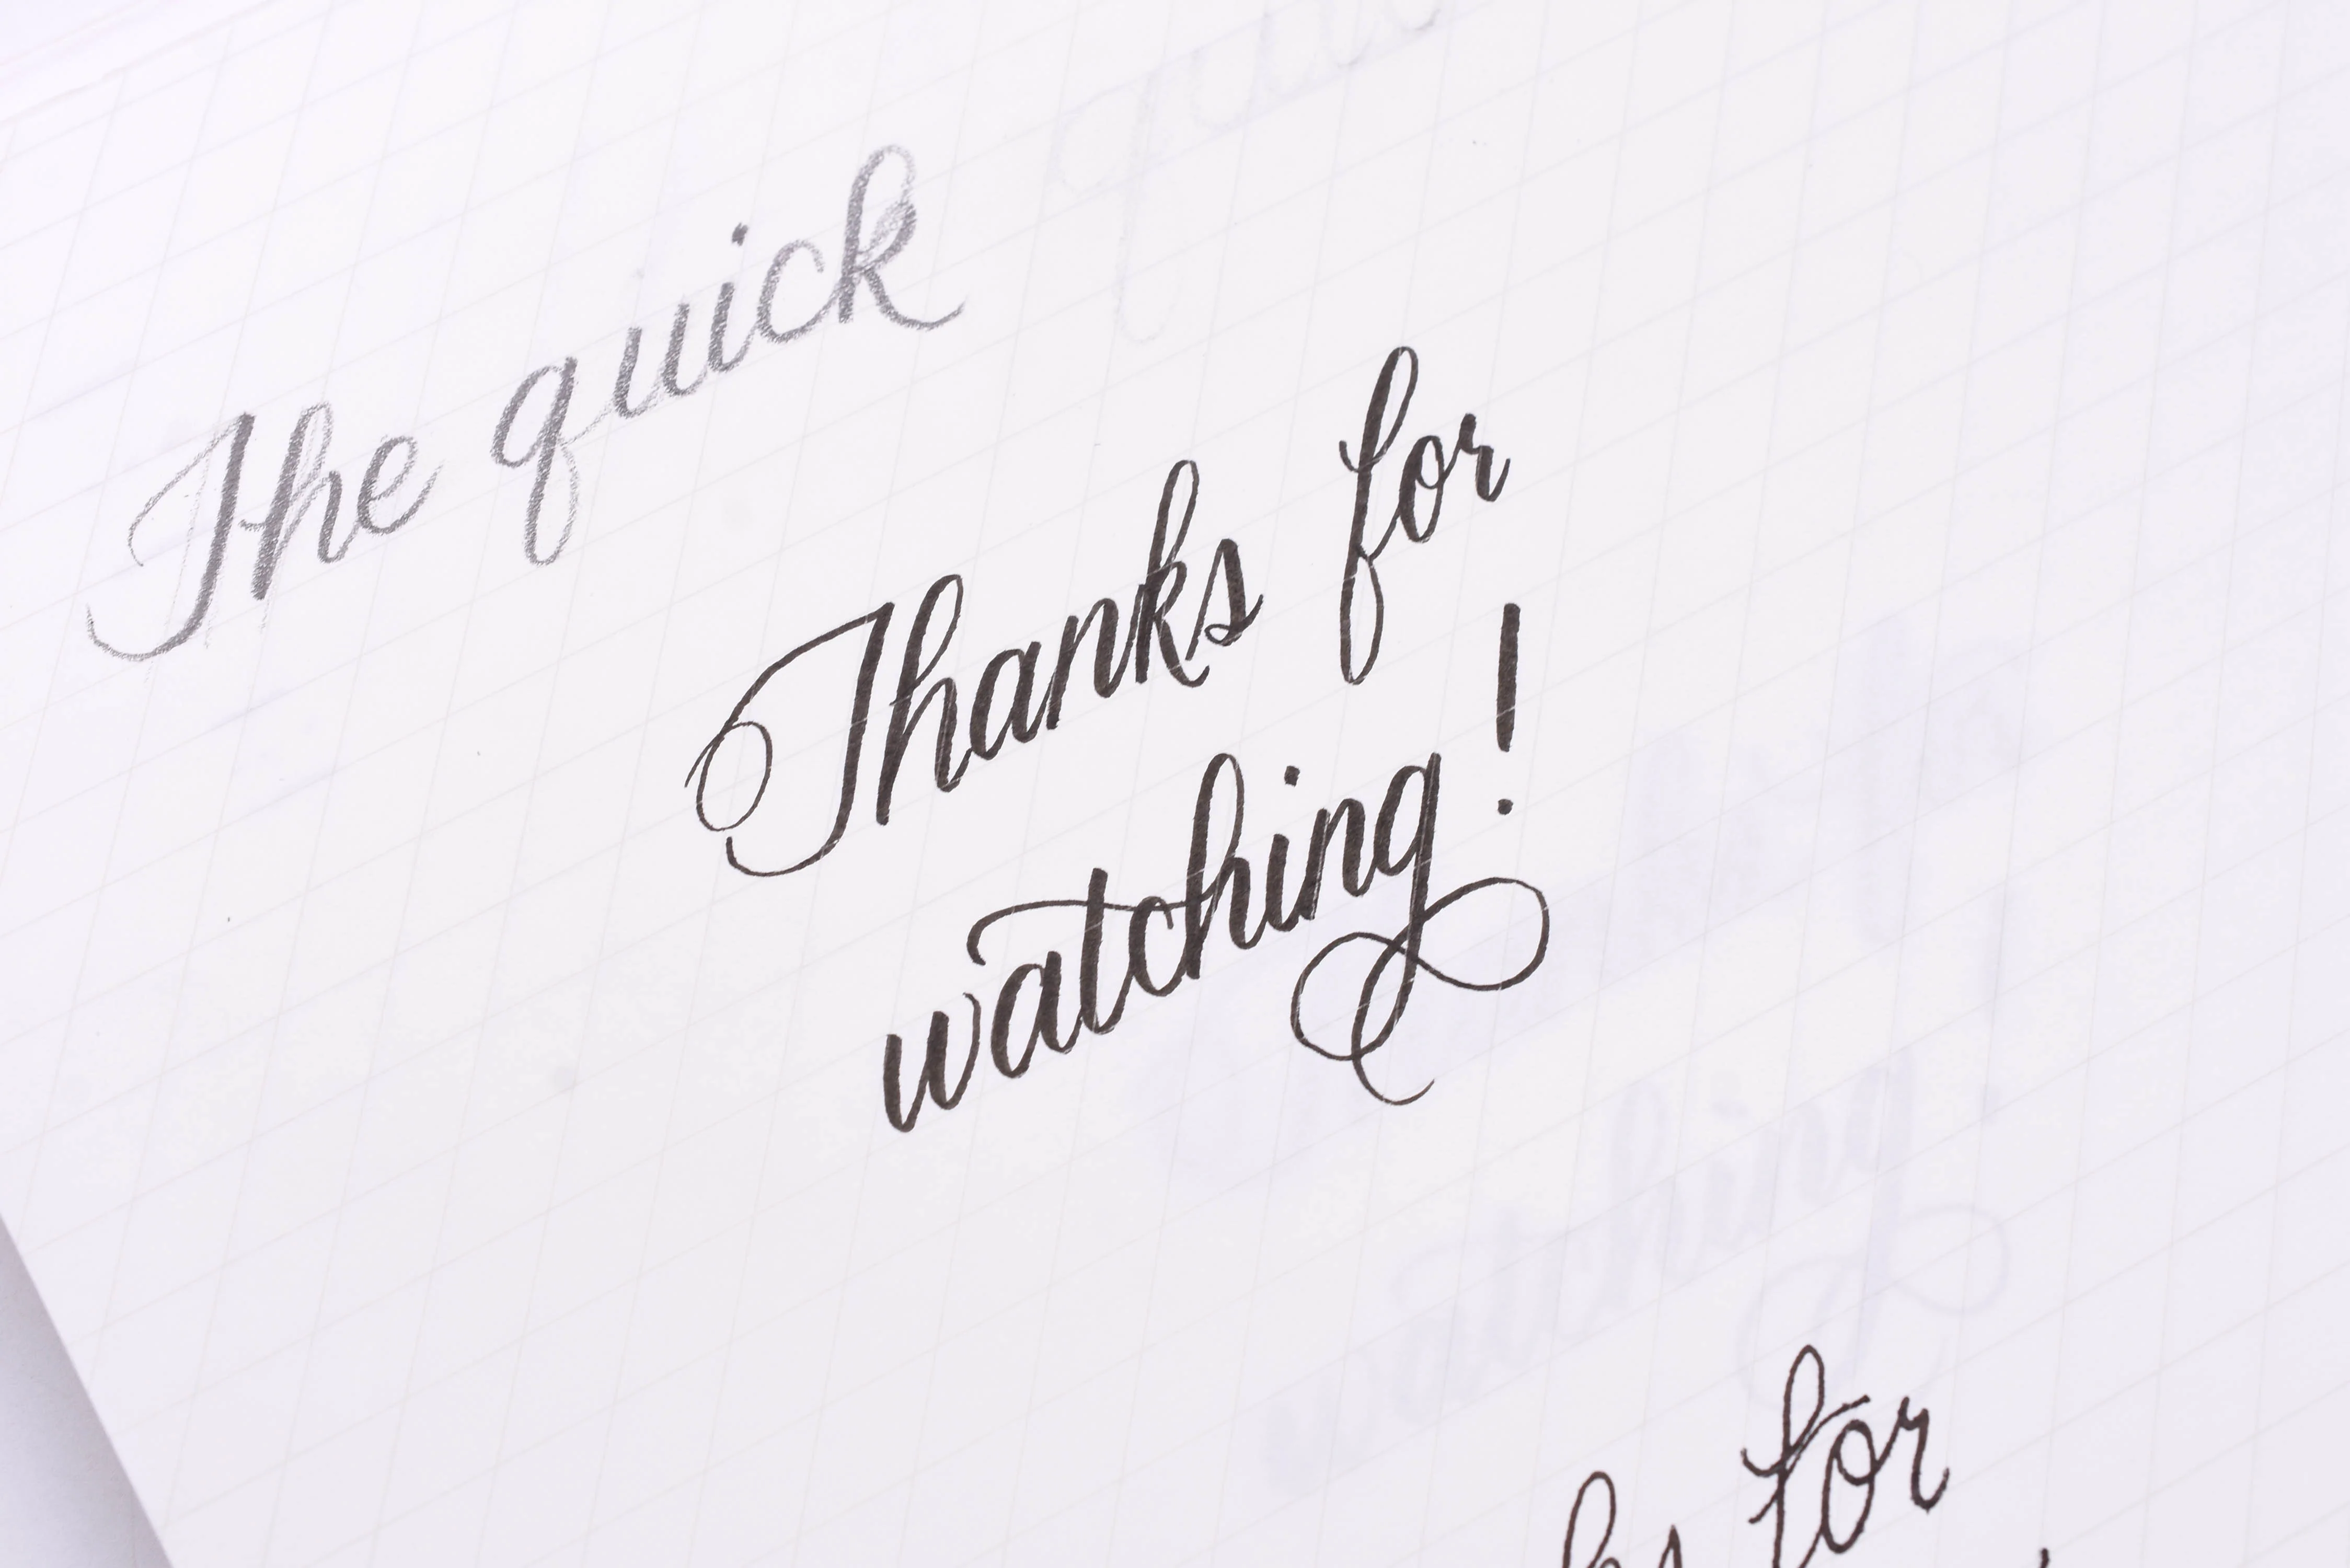 The quick
Thanks for
watching!
for